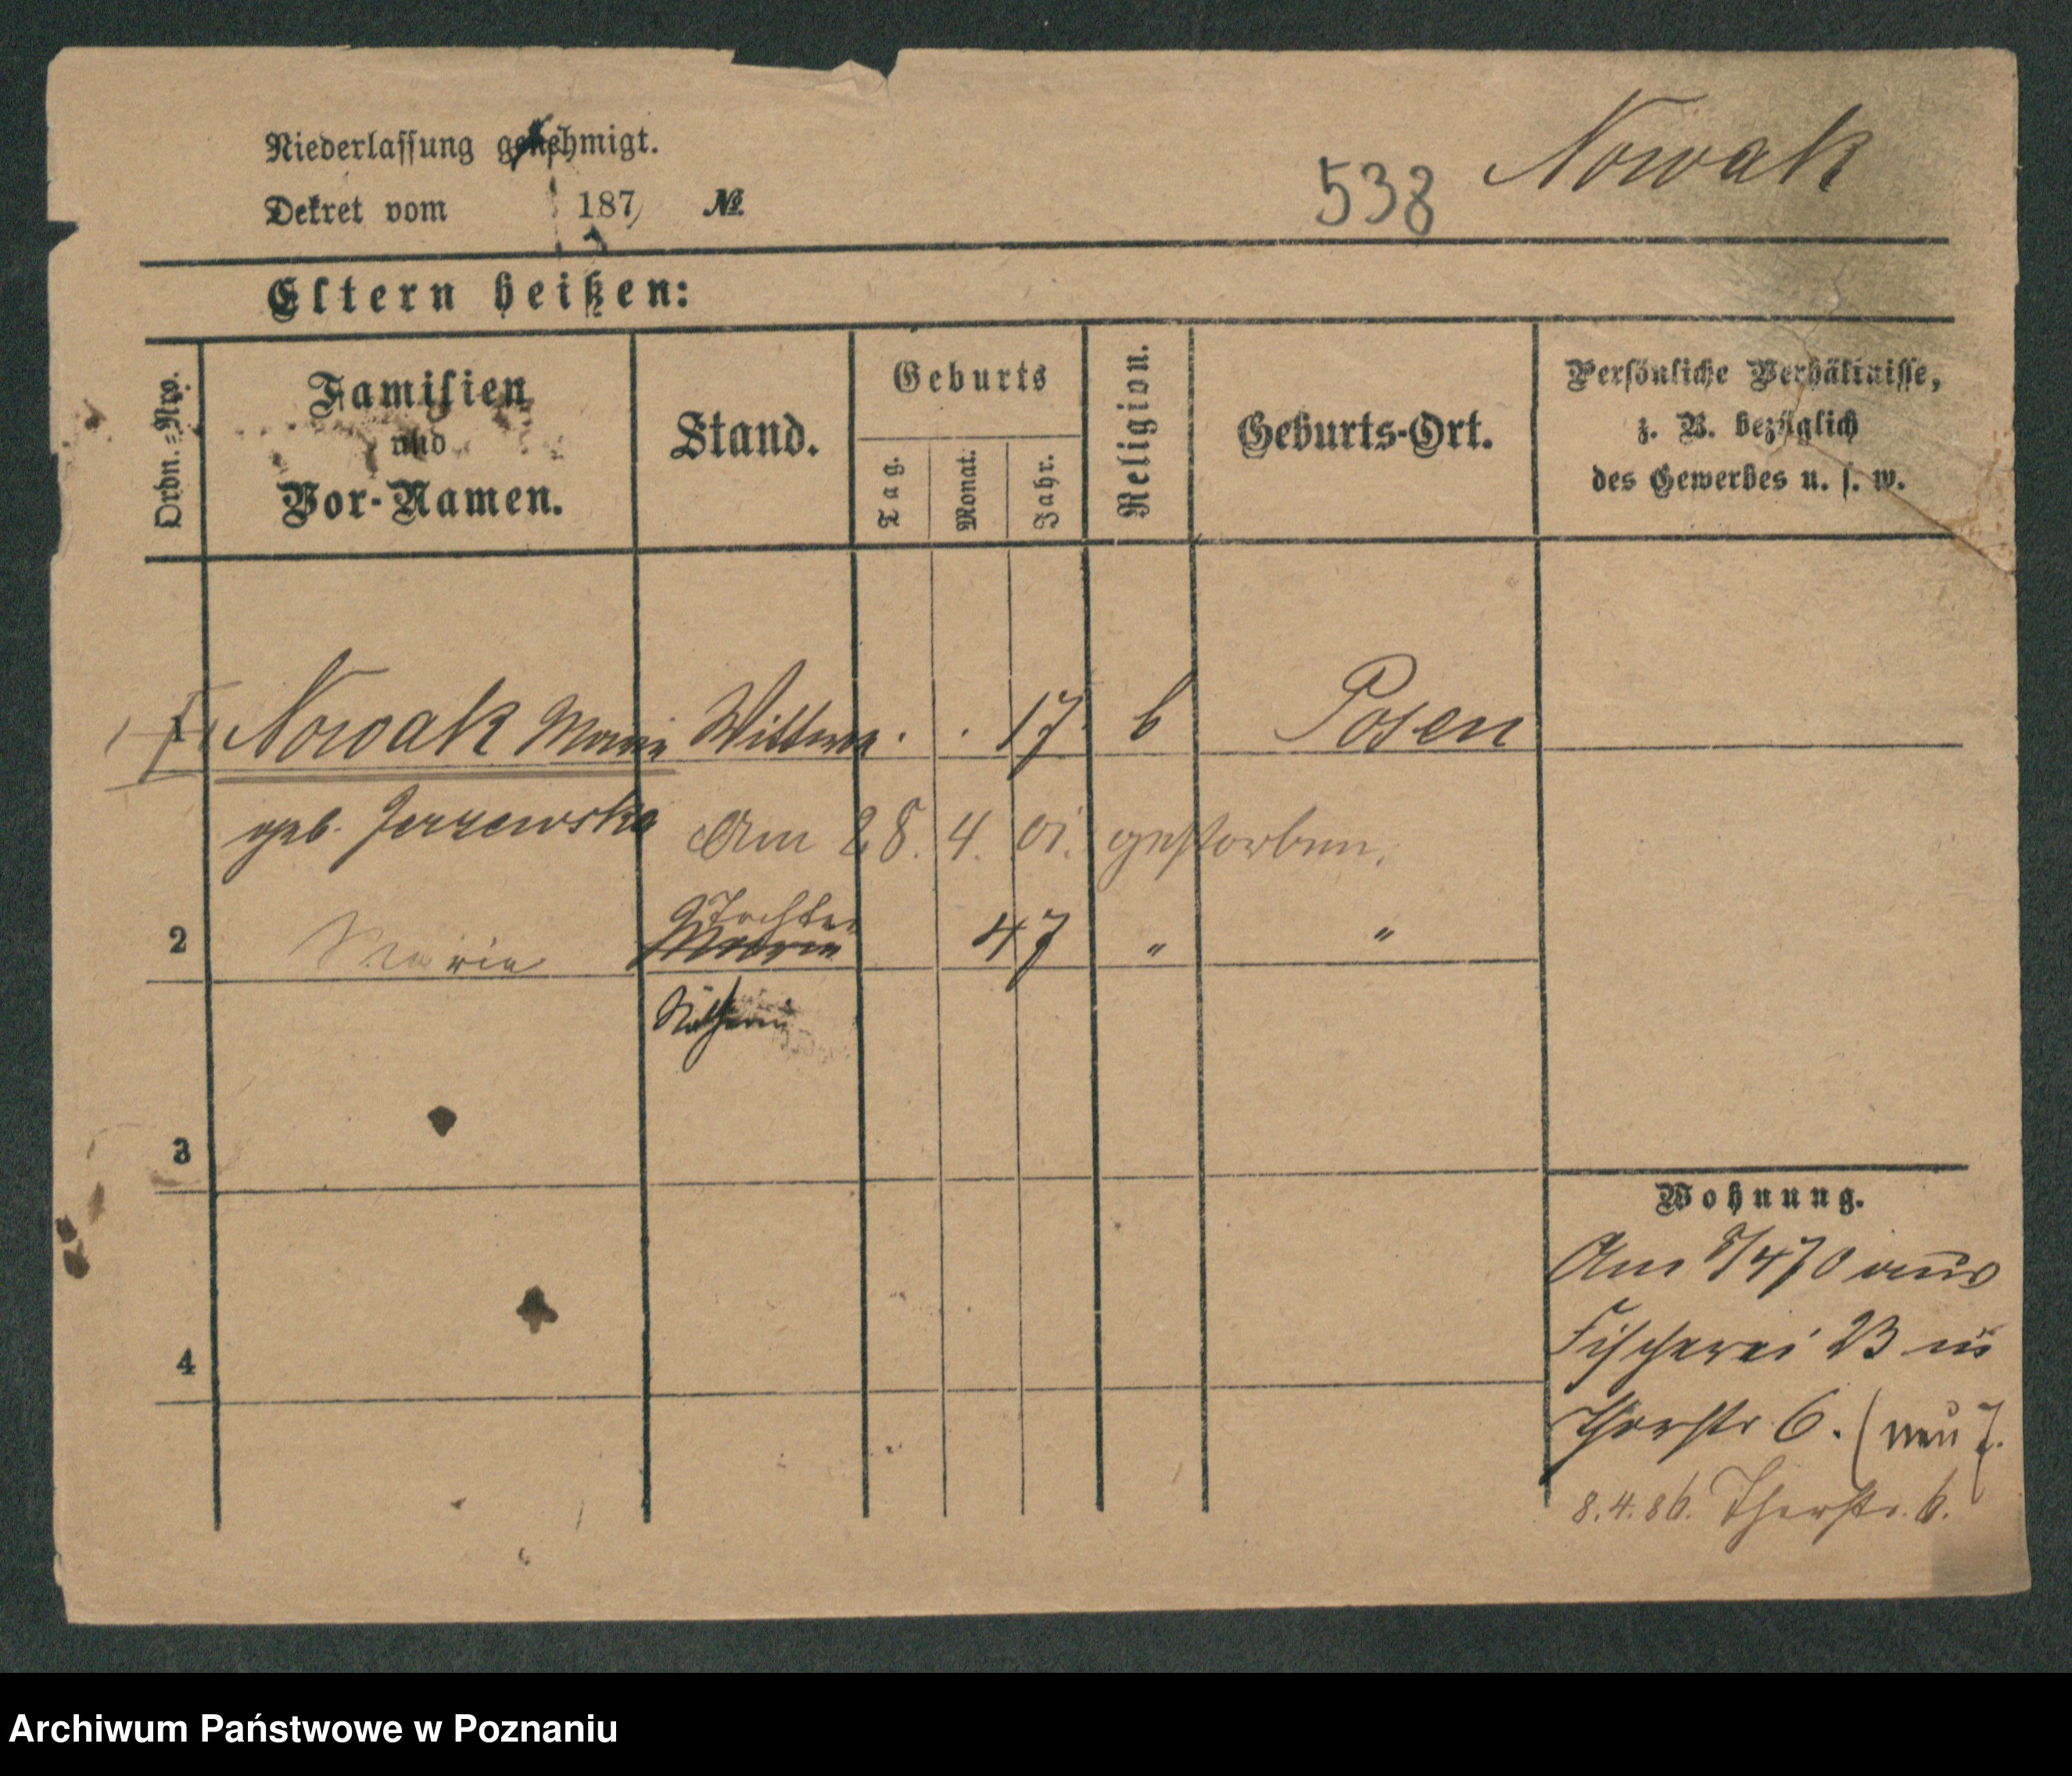 Niederlassung genehmigt.
Dekret vom 187 №
538 Nowak
Eltern heißen:
Ordn.-Nro.
Familien
und
Vor-Namen.
Stand.
Geburts
Tag.
Monat.
Jahr.
Religion.
Geburts-Ort.
Persönliche Verhältnisse,
z. B. bezüglich
des Gewerbes u. s. w.
1 Nowak Marie Wittwe . . 17 b Posen
geb. Jerzewska Am 28. 4. 01. gestorben.
Tochter
2 Marie Marie 47 " "
Näherin
3
4
Wohnung.
Am 8/4 70 aus
Fischerei 23 in
Thorstr 6. (neu 7.
8.4.86. Thorstr. 6.
Archiwum Państwowe w Poznaniu